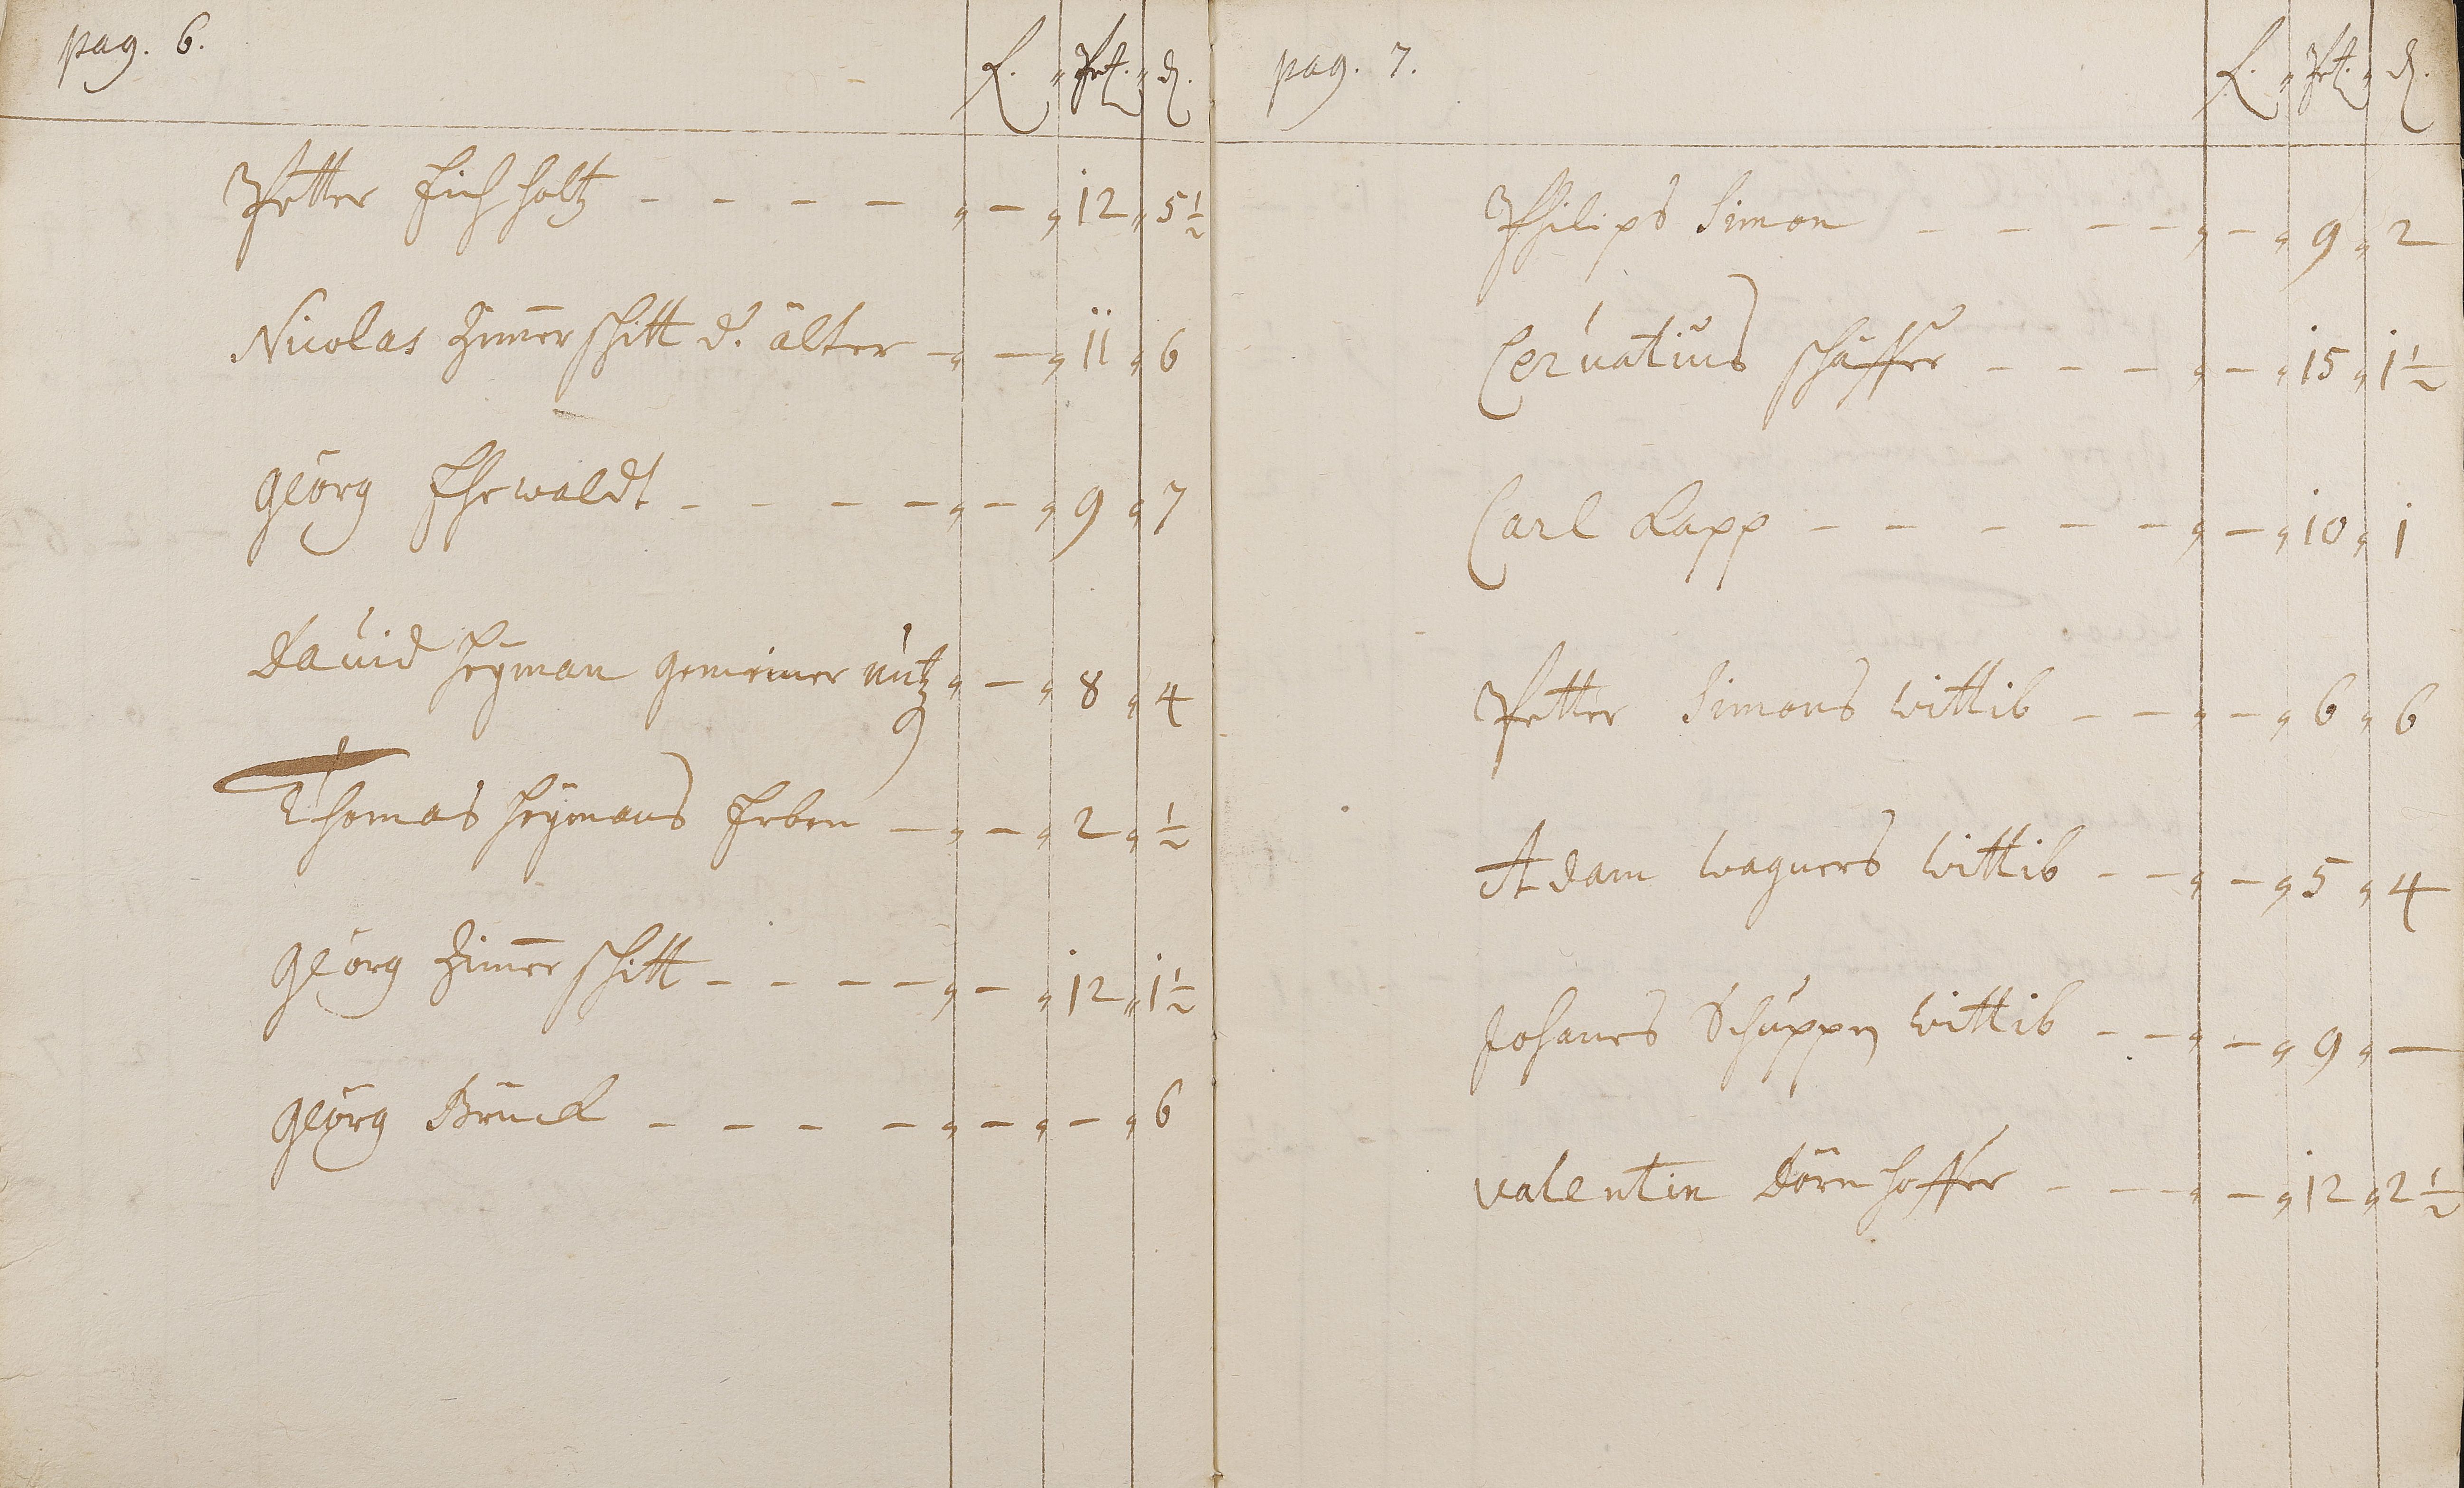 pag. 6.
f. " ßt. " d.
Petter Eichholtz - - - - " - " 12 " 5 1/2
Nicolas Zim̄erschitt d. älter - " - " 11 " 6
Georg Ehewaldt - - - - " - " 9 " 7
David Heÿman gemeiner nutz " - " 8 " 4
Thomas Heÿmans Erben - " - " 2 " 1/2
Georg Zim̄erschitt - - - - " - " 12 " 1 1/2
Georg Brück - - - - " - " - " 6
pag. 7.
f. " ßt. " d.
Philips Simon - - - - " - " 9 " 2
Cervatius schäffer - - - " - " 15 " 1 1/2
Carl Lapp - - - - - " - " 10 " 1
Petter Simons Wittib - - " - " 6 " 6
Adam Wagners Wittib - - " - " 5 " 4
Johanes Schuppen Wittib - - " - " 9 " -
Valentin Dörnhoffer - - - " - " 12 " 2 1/2